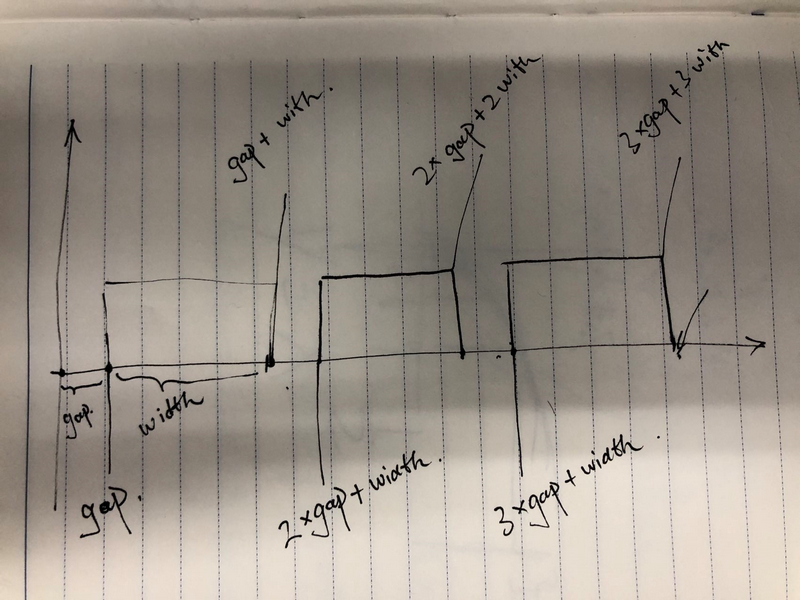 gap + with.
2x gap + 2 with
3x gap + 3 with
gap.
width
gap.
2 x gap + width.
3 x gap + width.